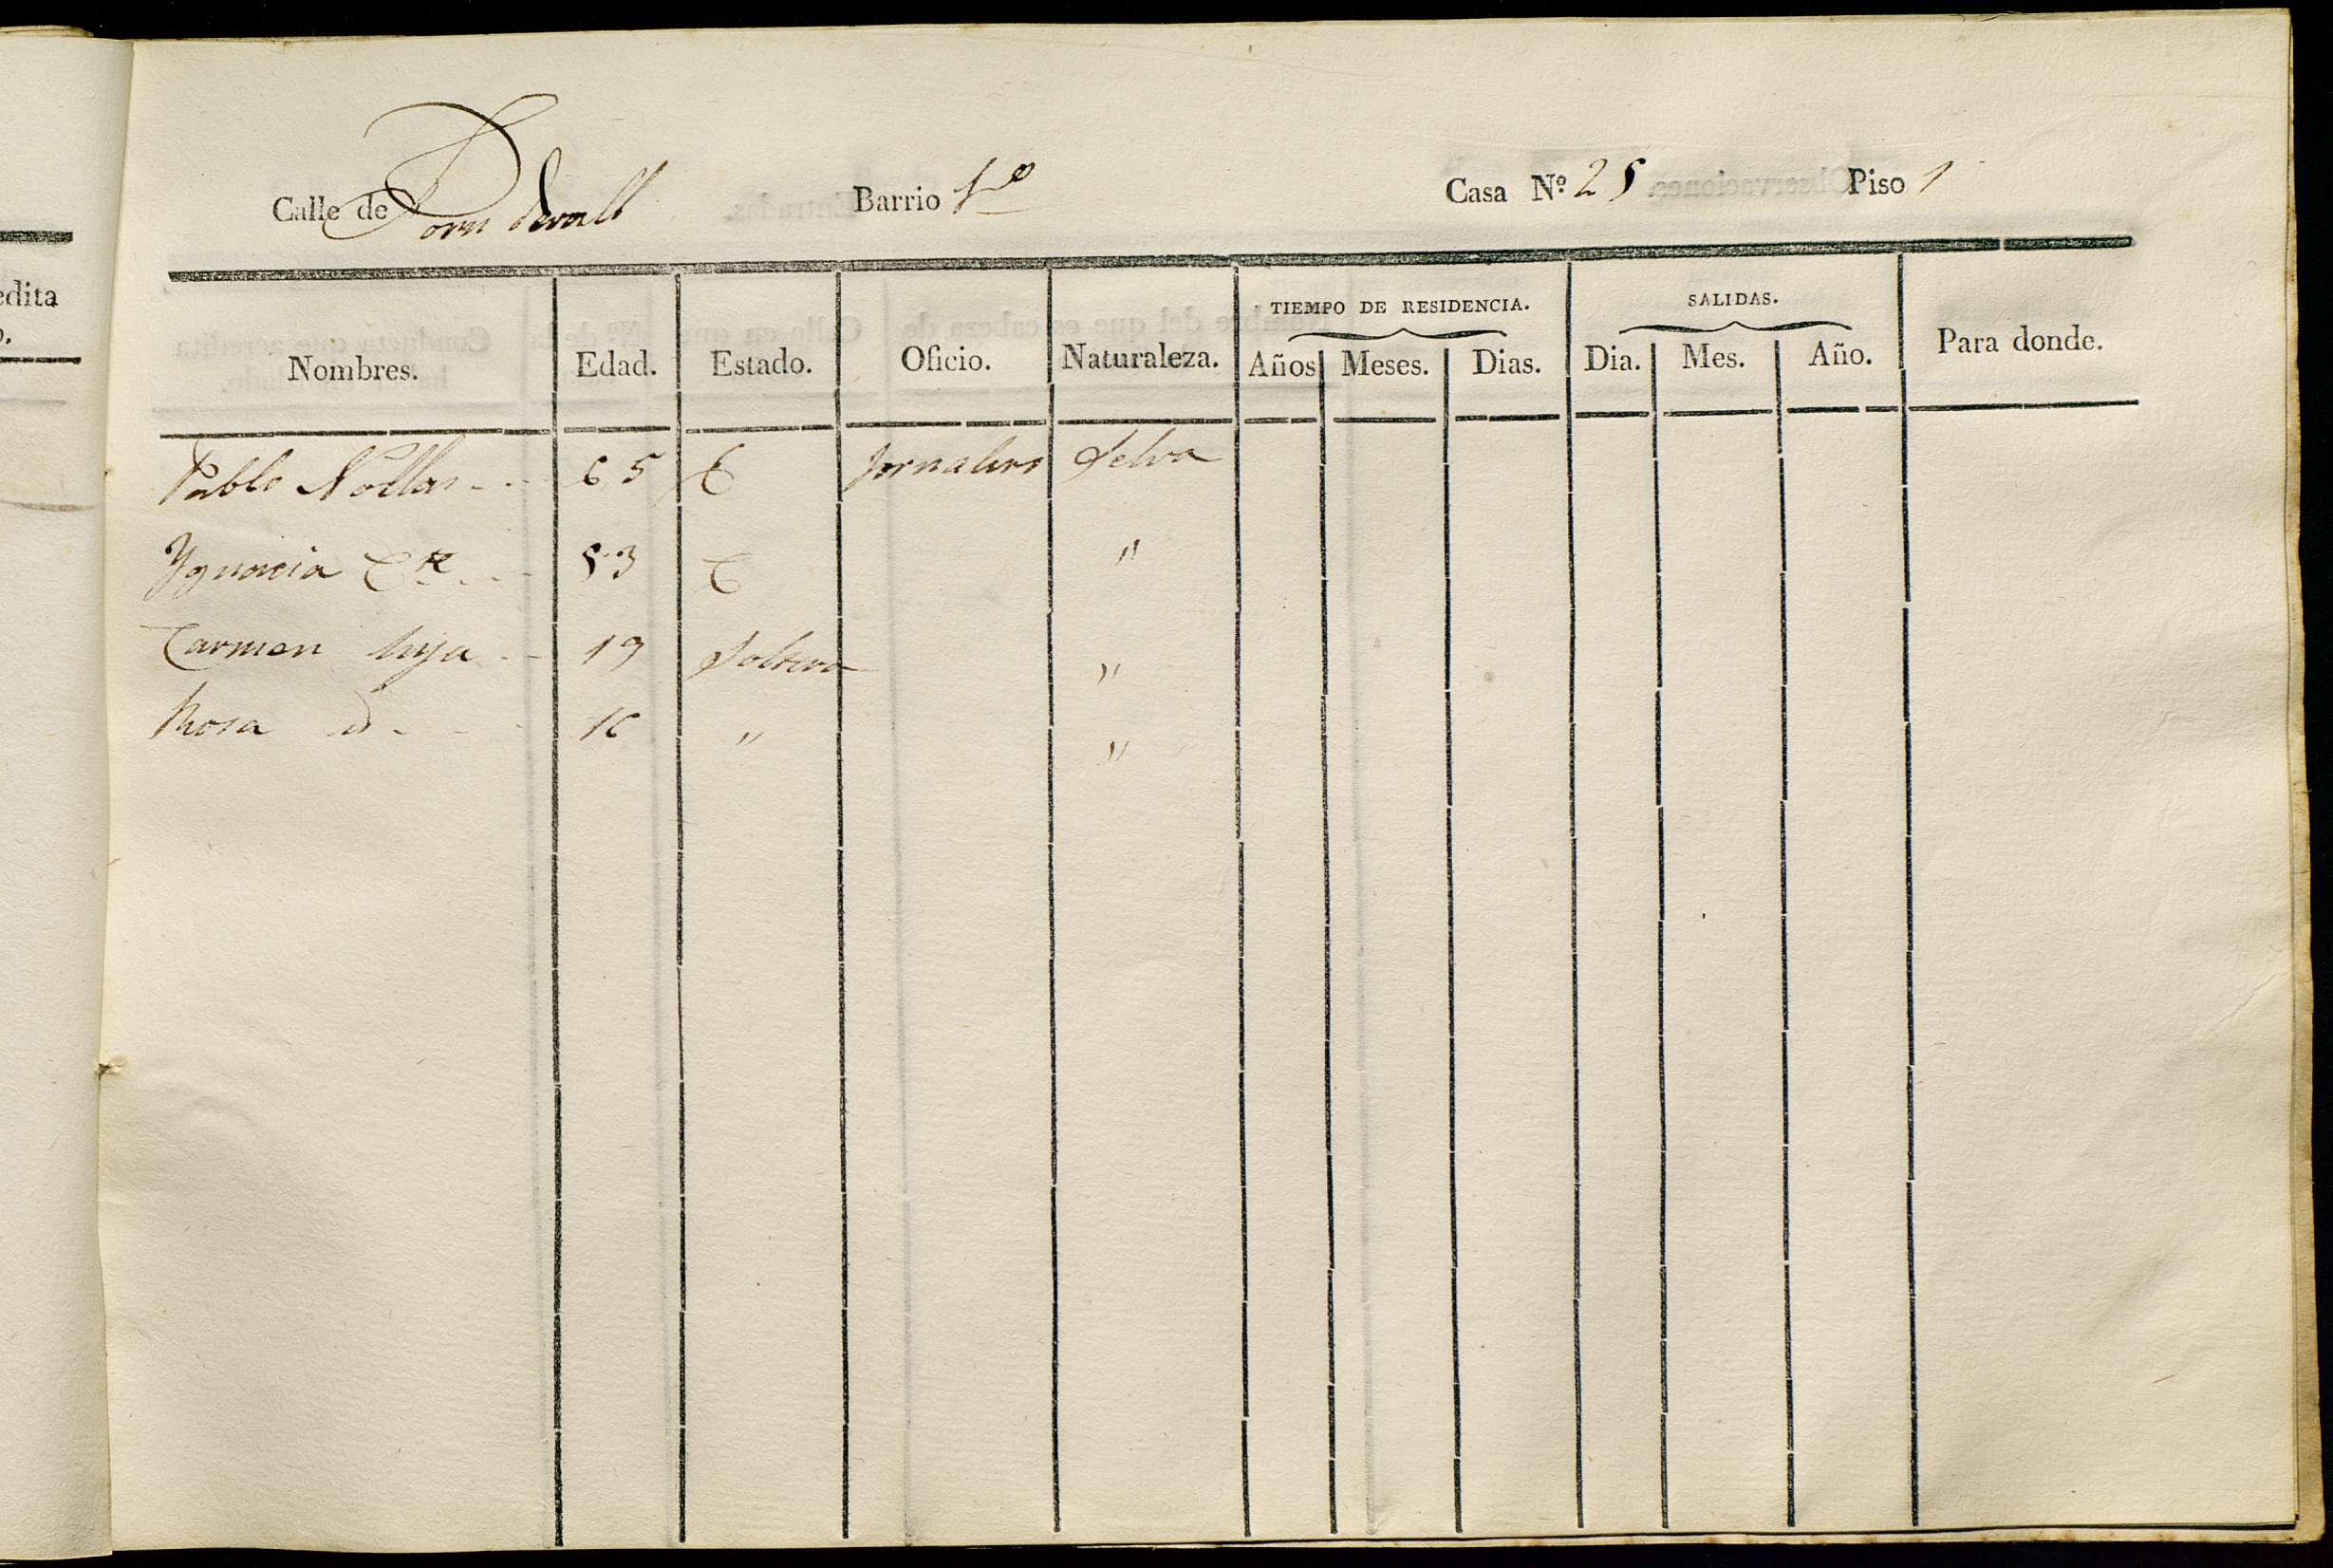 edita
o.
Calle de Forn devall Barrio 1º Casa Nº 25 Piso 1
Nombres. Edad. Estado. Oficio. Naturaleza. TIEMPO DE RESIDENCIA. Años Meses. Dias. SALIDAS. Dia. Mes. Año. Para donde.
Pablo Nollas 65 C Jornalero Selva
Ygnacia C 53 C "
Carmen hija 19 Soltera "
Rosa id 16 " "